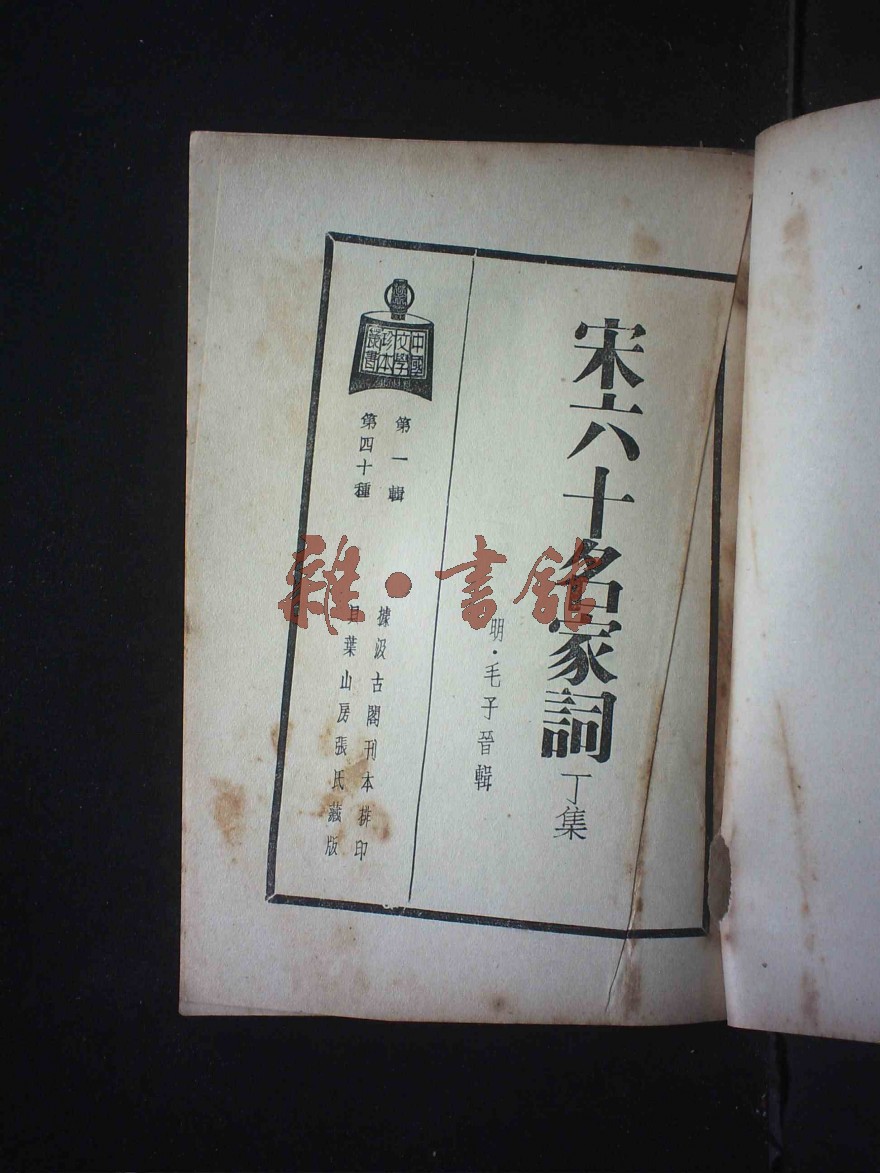 宋六十名家詞 丁集
明·毛子晉輯
中國
文學
珍本
叢書
第一輯
第四十種
據汲古閣刊本排印
貝葉山房張氏藏版
雜·書館